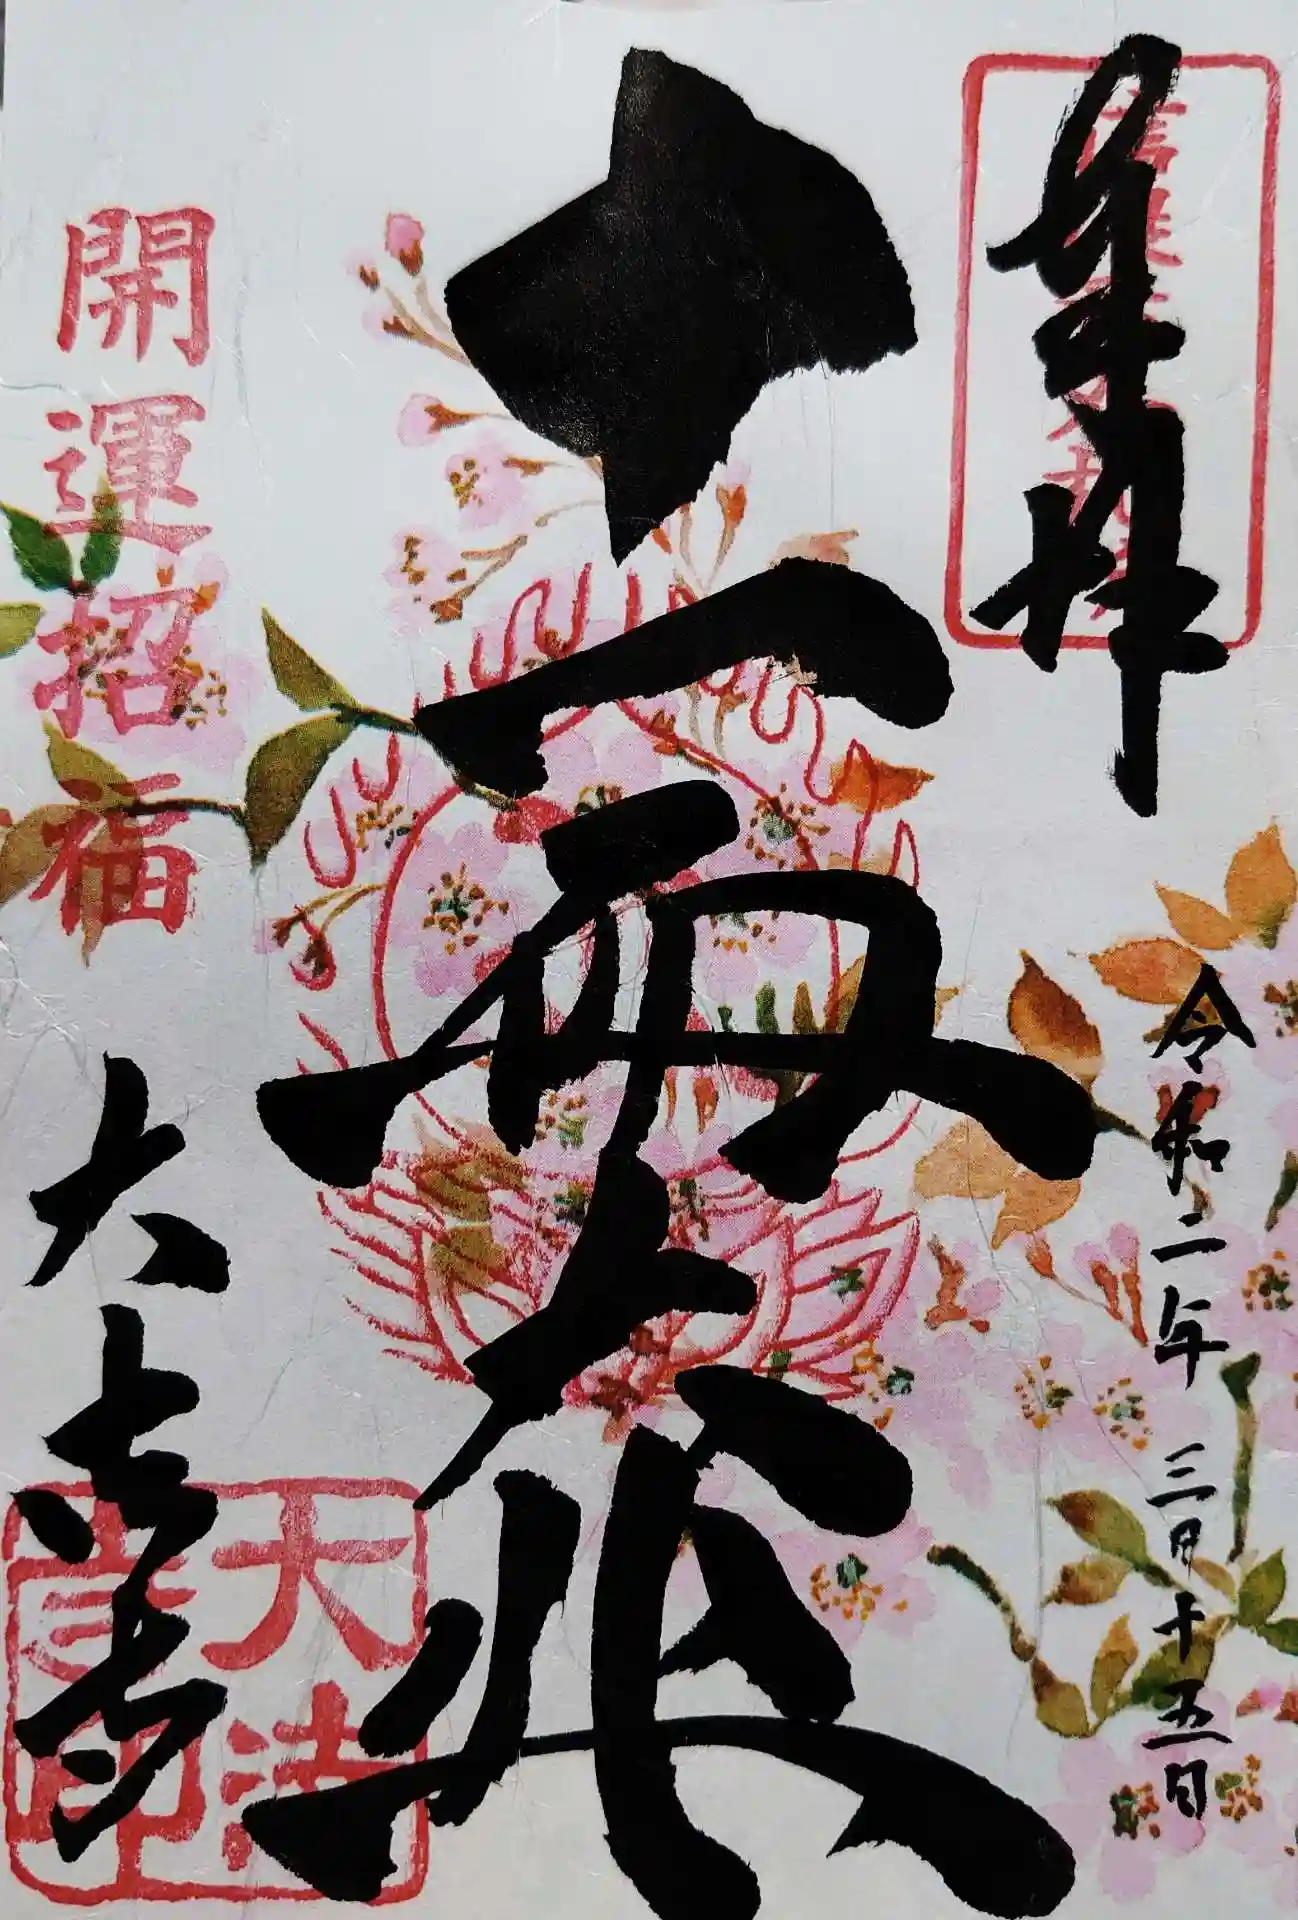 奉拝
令和二年三月十五日
十一面大悲
開運招福
大法寺
大法
印